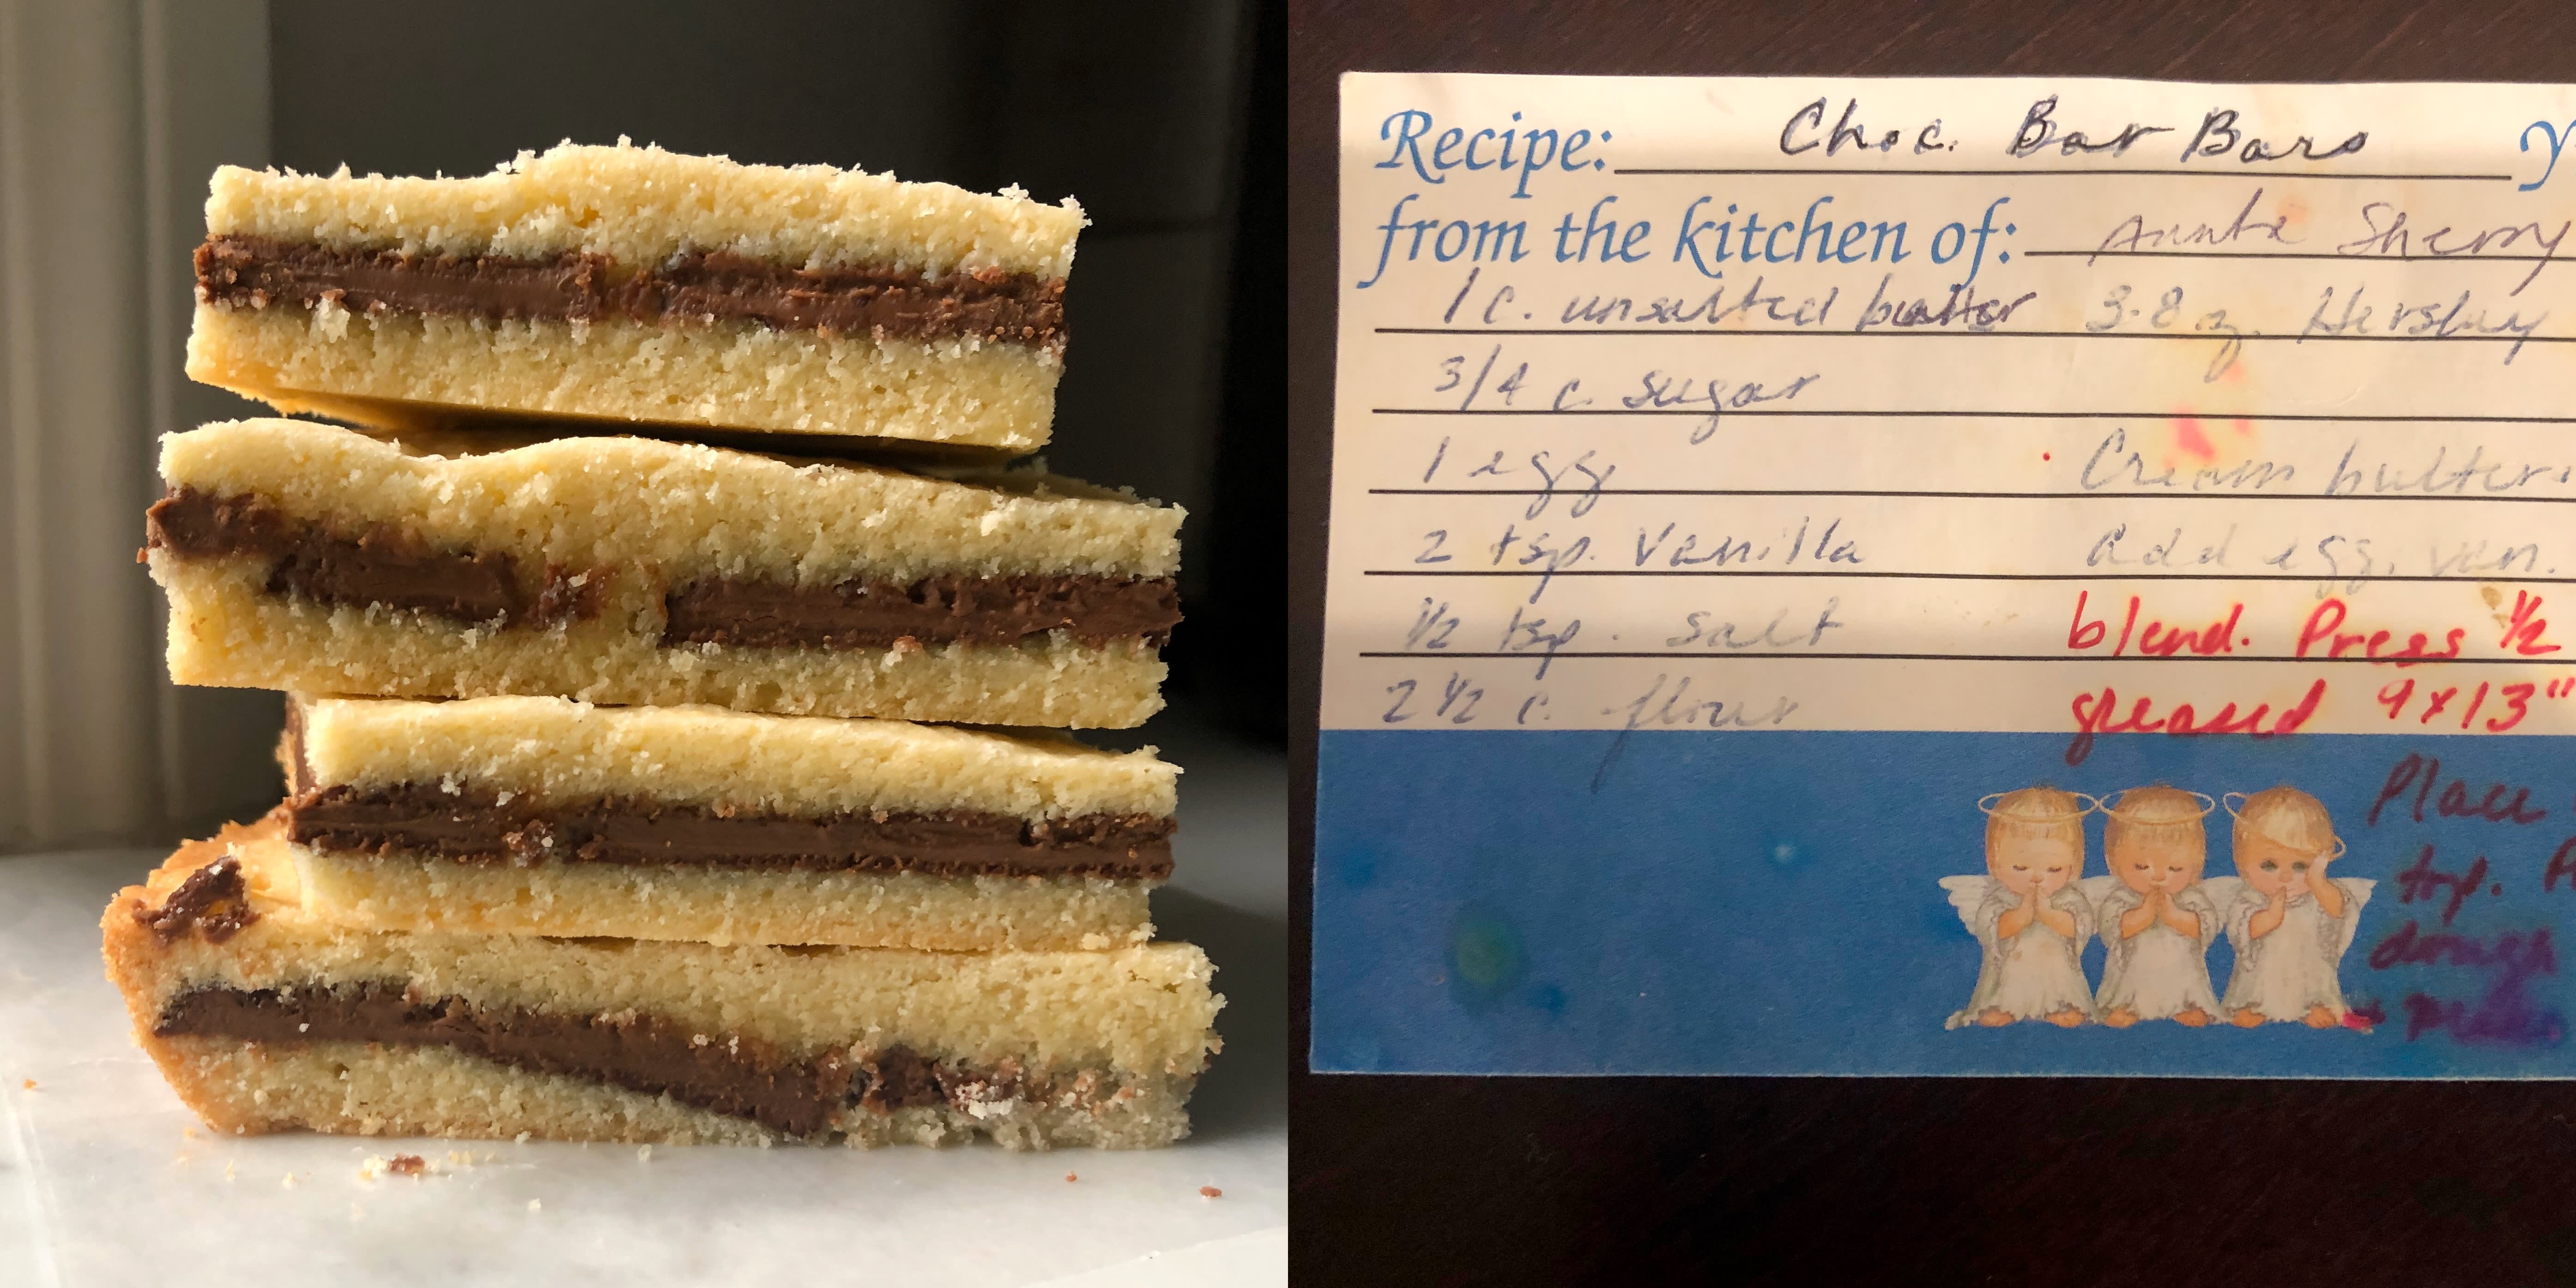 Recipe: Choc. Bar Bars
from the kitchen of: Aunte Sherry
1 c. unsalted butter 3-8 oz. Hershey
3/4 c. sugar
1 egg Cream butter
2 tsp. Vanilla Add egg, van.
1/2 tsp. salt blend. Press 1/2
2 1/2 c. flour greased 9x13"
Place
top.
dough